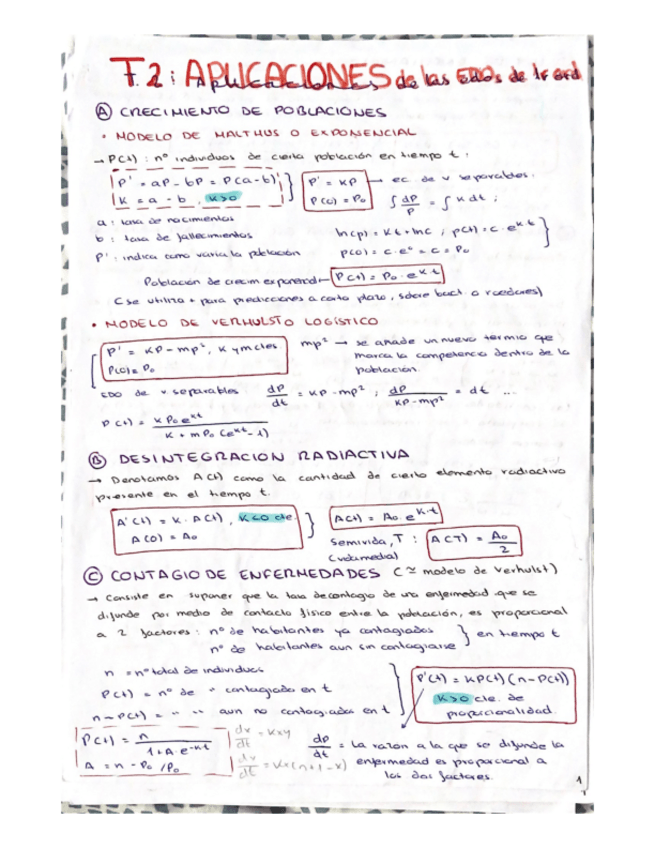 T.2: APLICACIONES de las EDOS de 1r ord
Ⓐ CRECIMIENTO DE POBLACIONES
• MODELO DE MALTHUS O EXPONENCIAL
→ P(t) : nº individuos de cierta población en tiempo t :
P' = aP - bP = P(a-b)
K = a - b , K>0
P' = KP → ec. de v separables.
P(0) = P₀
∫ dP/P = ∫ K dt ;
a : tasa de nacimientos
b : tasa de fallecimientos
P' : indica como varia la población
ln(p) = Kt + lnc ; p(t) = c·e^k·t
p(0) = c·e⁰ = c = P₀
Población de crecim exponencial → P(t) = P₀·e^k·t
(se utiliza + para predicciones a corto plazo, sobre bact. o roedores)
• MODELO DE VERHULST O LOGÍSTICO
P' = KP - mp², K y m ctes
P(0) = P₀
mp² → se añade un nuevo termio que
marca la competencia dentro de la
población.
EDO de v separables dP/dt = KP - mp² ; dP/KP-mp² = dt ...
P(t) = K P₀ e^kt / K + m P₀ (e^kt - 1)
Ⓑ DESINTEGRACION RADIACTIVA
→ Denotamos A(t) como la cantidad de cierto elemento radiactivo
presente en el tiempo t.
A'(t) = K · A(t) , K<0 cte.
A(0) = A₀
A(t) = A₀·e^k·t
Semivida, T : A(T) = A₀/2
Ⓒ CONTAGIO DE ENFERMEDADES (≃ modelo de Verhulst)
→ Consiste en suponer que la tasa de contagio de una enfermedad que se
difunde por medio de contacto físico entre la población, es proporcional
a 2 factores : nº de habitantes ya contagiados } en tiempo t
nº de habitantes aun sin contagiarse
n = nº total de individuos
P(t) = nº de " contagiado en t
n-P(t) = " " aun no contagiada en t
P'(t) = KP(t)(n-P(t))
K>0 cte. de
proporcionalidad.
P(t) = n / 1+A·e^-nkt
A = n - P₀ / P₀
dx/dt = Kxy
dx/dt = Kx(n+1-x)
dP/dt = La razon a la que se difunde la
enfermedad es proporcional a
los dos factores.
1